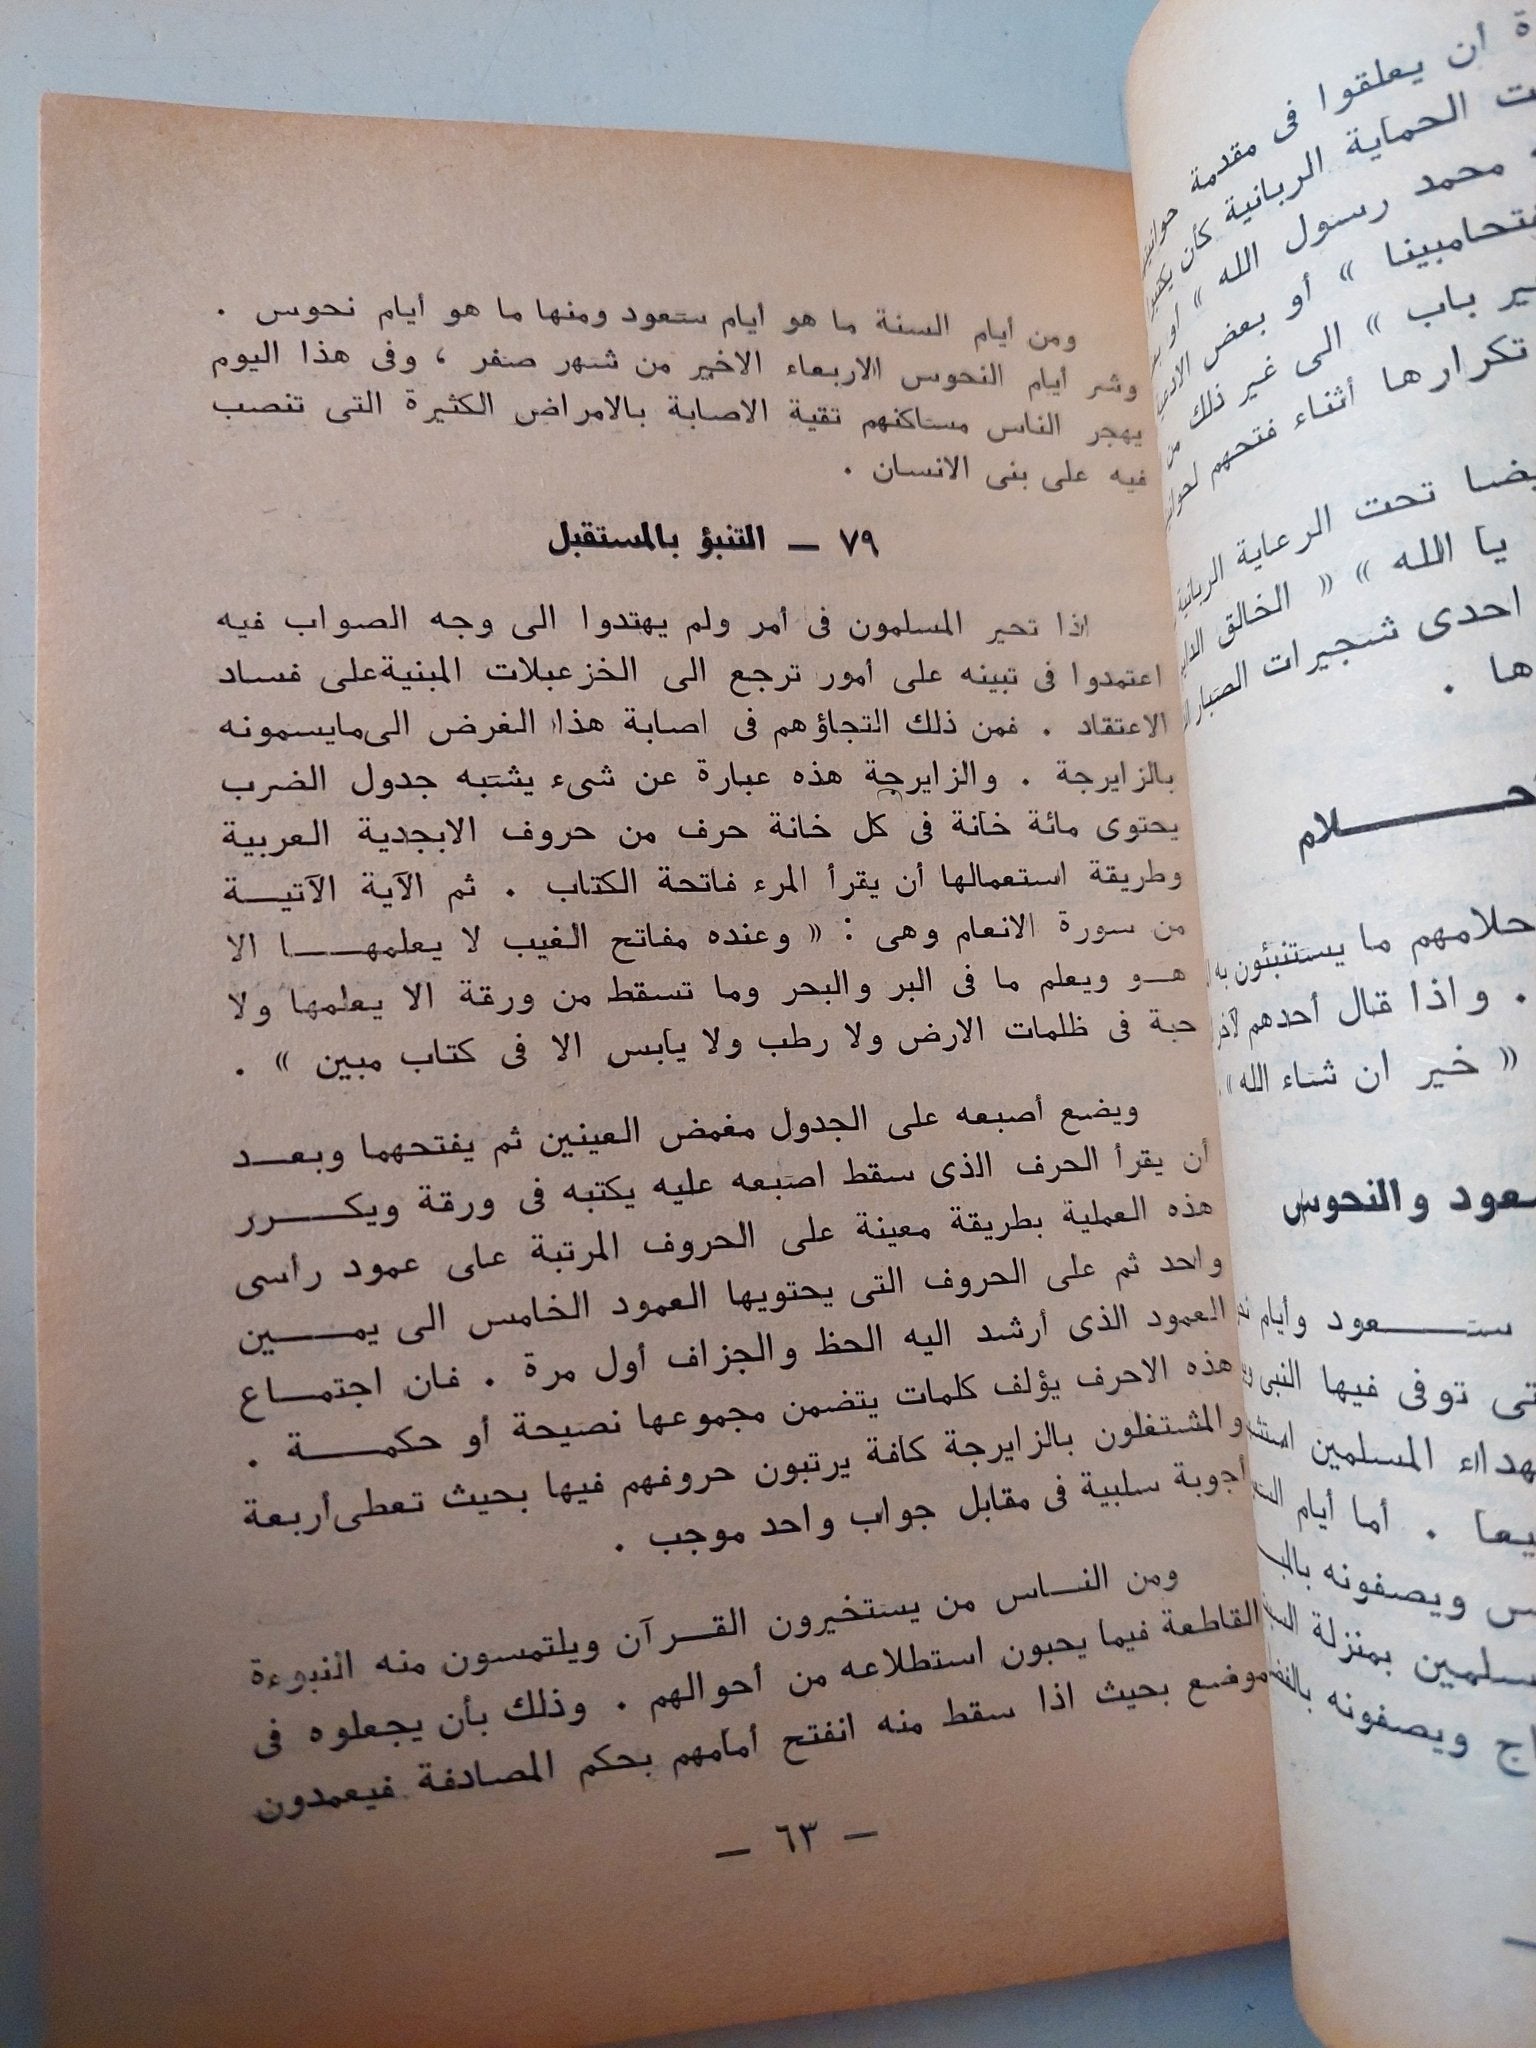 ومن أيام السنة ما هو أيام سعود ومنها ما هو أيام نحوس .
وشر أيام النحوس الاربعاء الاخير من شهر صفر ، وفى هذا اليوم
يهجر الناس مساكنهم تقية الاصابة بالامراض الكثيرة التى تنصب
فيه على بنى الانسان .
٧٩ — التنبؤ بالمستقبل
اذا تحير المسلمون فى أمر ولم يهتدوا الى وجه الصواب فيه
اعتمدوا فى تبينه على أمور ترجع الى الخزعبلات المبنية على فساد
الاعتقاد . فمن ذلك التجاؤهم فى اصابة هذا الغرض الى مايسمونه
بالزايرجة . والزايرجة هذه عبارة عن شىء يشبه جدول الضرب
يحتوى مائة خانة فى كل خانة حرف من حروف الابجدية العربية
وطريقة استعمالها أن يقرأ المرء فاتحة الكتاب . ثم الآية الآتيـــة
من سورة الانعام وهى : « وعنده مفاتح الغيب لا يعلمهـــا الا
هـو ويعلم ما فى البر والبحر وما تسقط من ورقة الا يعلمها ولا
حبة فى ظلمات الارض ولا رطب ولا يابس الا فى كتاب مبين » .
ويضع أصبعه على الجدول مغمض العينين ثم يفتحهما وبعـد
أن يقرأ الحرف الذى سقط اصبعه عليه يكتبه فى ورقة ويكـــرر
هذه العملية بطريقة معينة على الحروف المرتبة على عمود رأسى
واحد ثم على الحروف التى يحتويها العمود الخامس الى يمـــين
العمود الذى أرشد اليه الحظ والجزاف أول مرة . فان اجتمـاع
هذه الاحرف يؤلف كلمات يتضمن مجموعها نصيحة أو حكمـــة .
والمشتغلون بالزايرجة كافة يرتبون حروفهم فيها بحيث تعطى أربعة
أجوبة سلبية فى مقابل جواب واحد موجب .
ومن النـاس من يستخيرون القـرآن ويلتمسون منه النبوءة
القاطعة فيما يحبون استطلاعه من أحوالهم . وذلك بأن يجعلوه فى
موضع بحيث اذا سقط منه انفتح أمامهم بحكم المصادفة فيعمدون
— ٦٣ —
أن يعلقوا فى مقدمة
الحماية الربانية كأن
محمد رسول الله » أو
» أو بعض
باب » الى غير ذلك من
تكرارها أثناء فتحهم
تحت الرعاية الربانية
يا الله » « الخالق
احدى شجيرات
ها .
ما يستنبئون به
. واذا قال أحدهم
« خير ان شاء الله » .
والنحوس
ســـعود وأيام
توفى فيها النبى
المسلمين
. أما أيام
ويصفونه
بمنزلة
ويصفونه